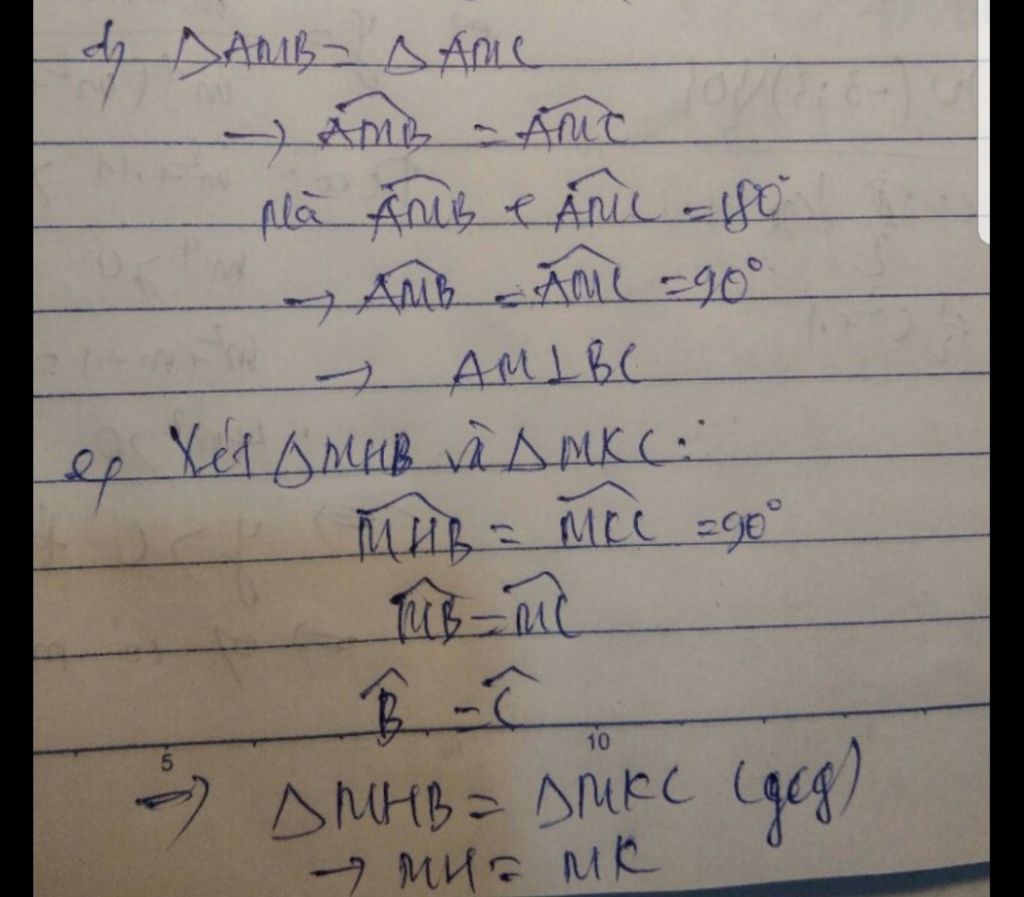 d, ΔAMB = ΔAMC
→ \widehat{AMB} = \widehat{AMC}
Mà \widehat{AMB} + \widehat{AMC} = 180°
→ \widehat{AMB} = \widehat{AMC} = 90°
→ AM⊥BC
e, Xét ΔMHB và ΔMKC:
\widehat{MHB} = \widehat{MKC} = 90°
\widehat{MB} = \widehat{MC}
\widehat{B} = \widehat{C}
5 10
⇒ ΔMHB = ΔMKC (gcg)
→ MH = MK